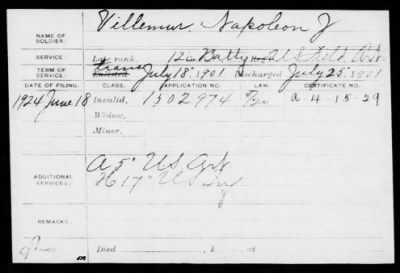 Villemur, Napoleon J
NAME OF SOLDIER:
SERVICE: Late rank, 12 Batty Reg't U S Field Art.
TERM OF SERVICE: Enlisted July 18, 1901 Discharged July 25, 1901
DATE OF FILING. CLASS. APPLICATION NO. LAW. CERTIFICATE NO.
1924 June 18 Invalid, 1502974 A-4-15-29
Widow,
Minor,
ADDITIONAL SERVICES: A 5" US Art
H 17" US Inf
REMARKS:
Died , 1 , at